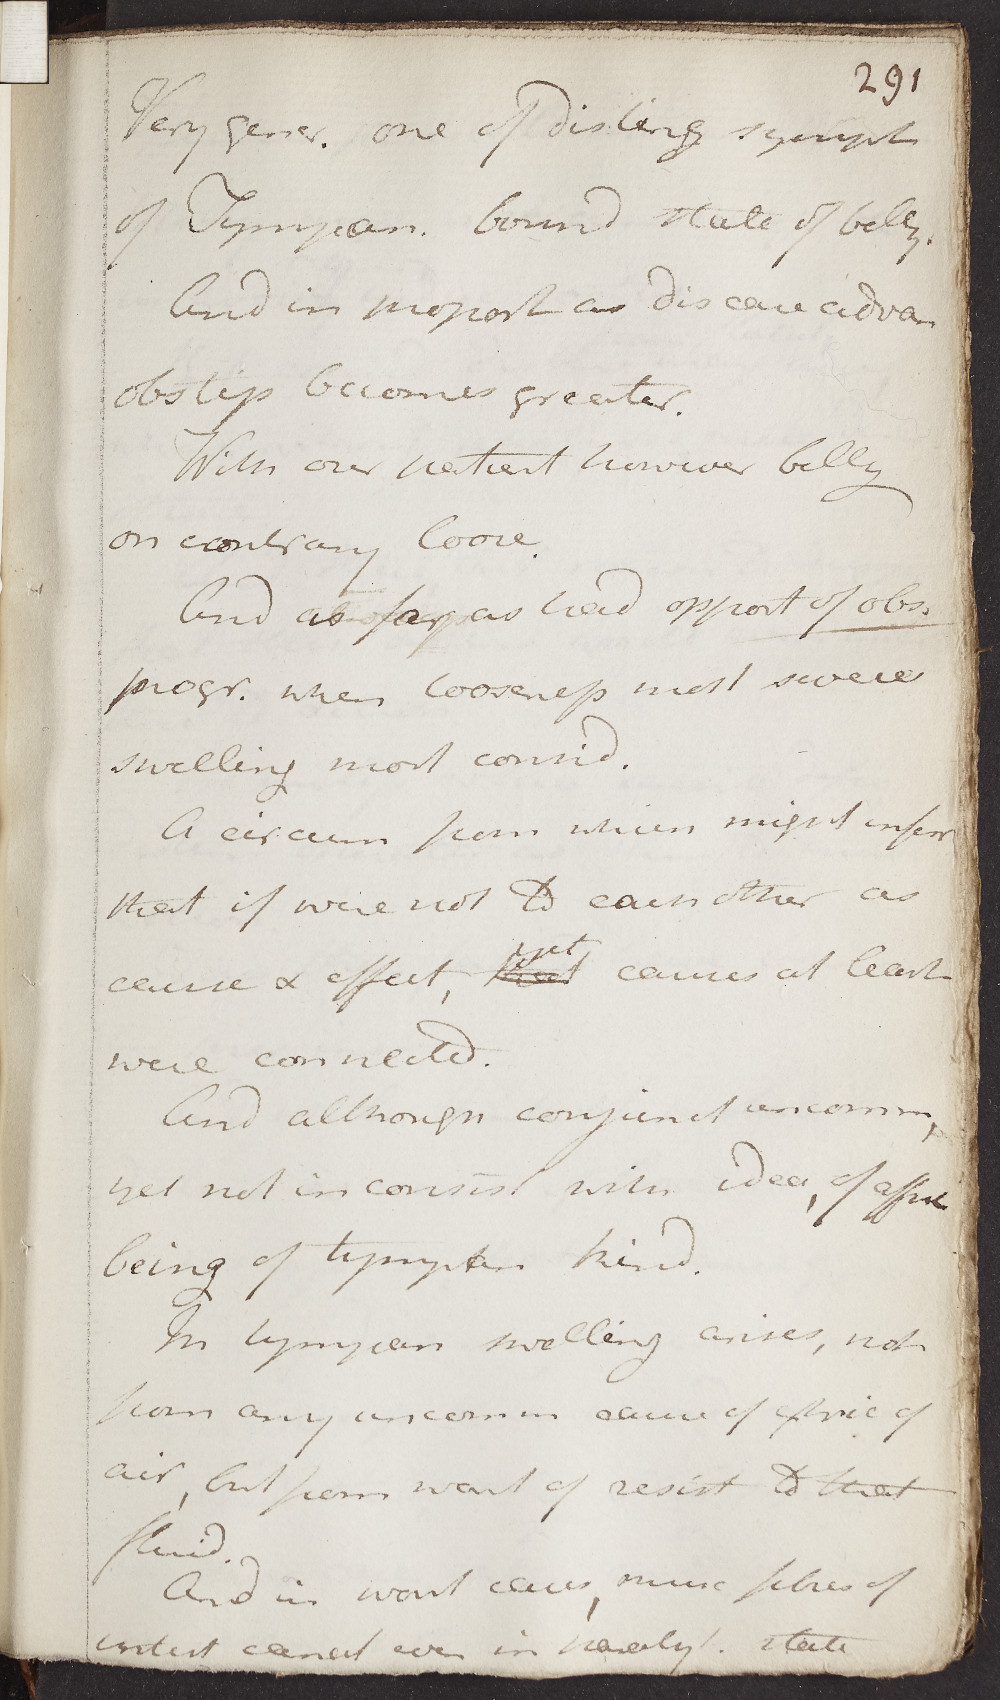 291
Very gener. one of disting sympt
of Tympan. bound state of belly.
And in proport as disease advan
obstip becomes greater.
With our patient however belly
on contrary loose.
And as far as had opport of obs.
progr. when looseness most severe
swelling most consid.
A circum from which might infer
that if were not to each other as
cause & effect, yet causes at least
were connected.
And although conjunct uncomm,
yet not inconsist with idea, of affect
being of tympan kind.
In tympan swelling arises, not
from any uncomm cause of of
air, but from want of resist to that
fluid.
And in worst cases, musc fibres of
intest canal even in paralyt. state